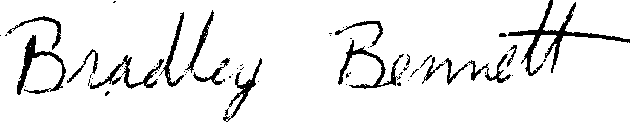 Bradley Bennett